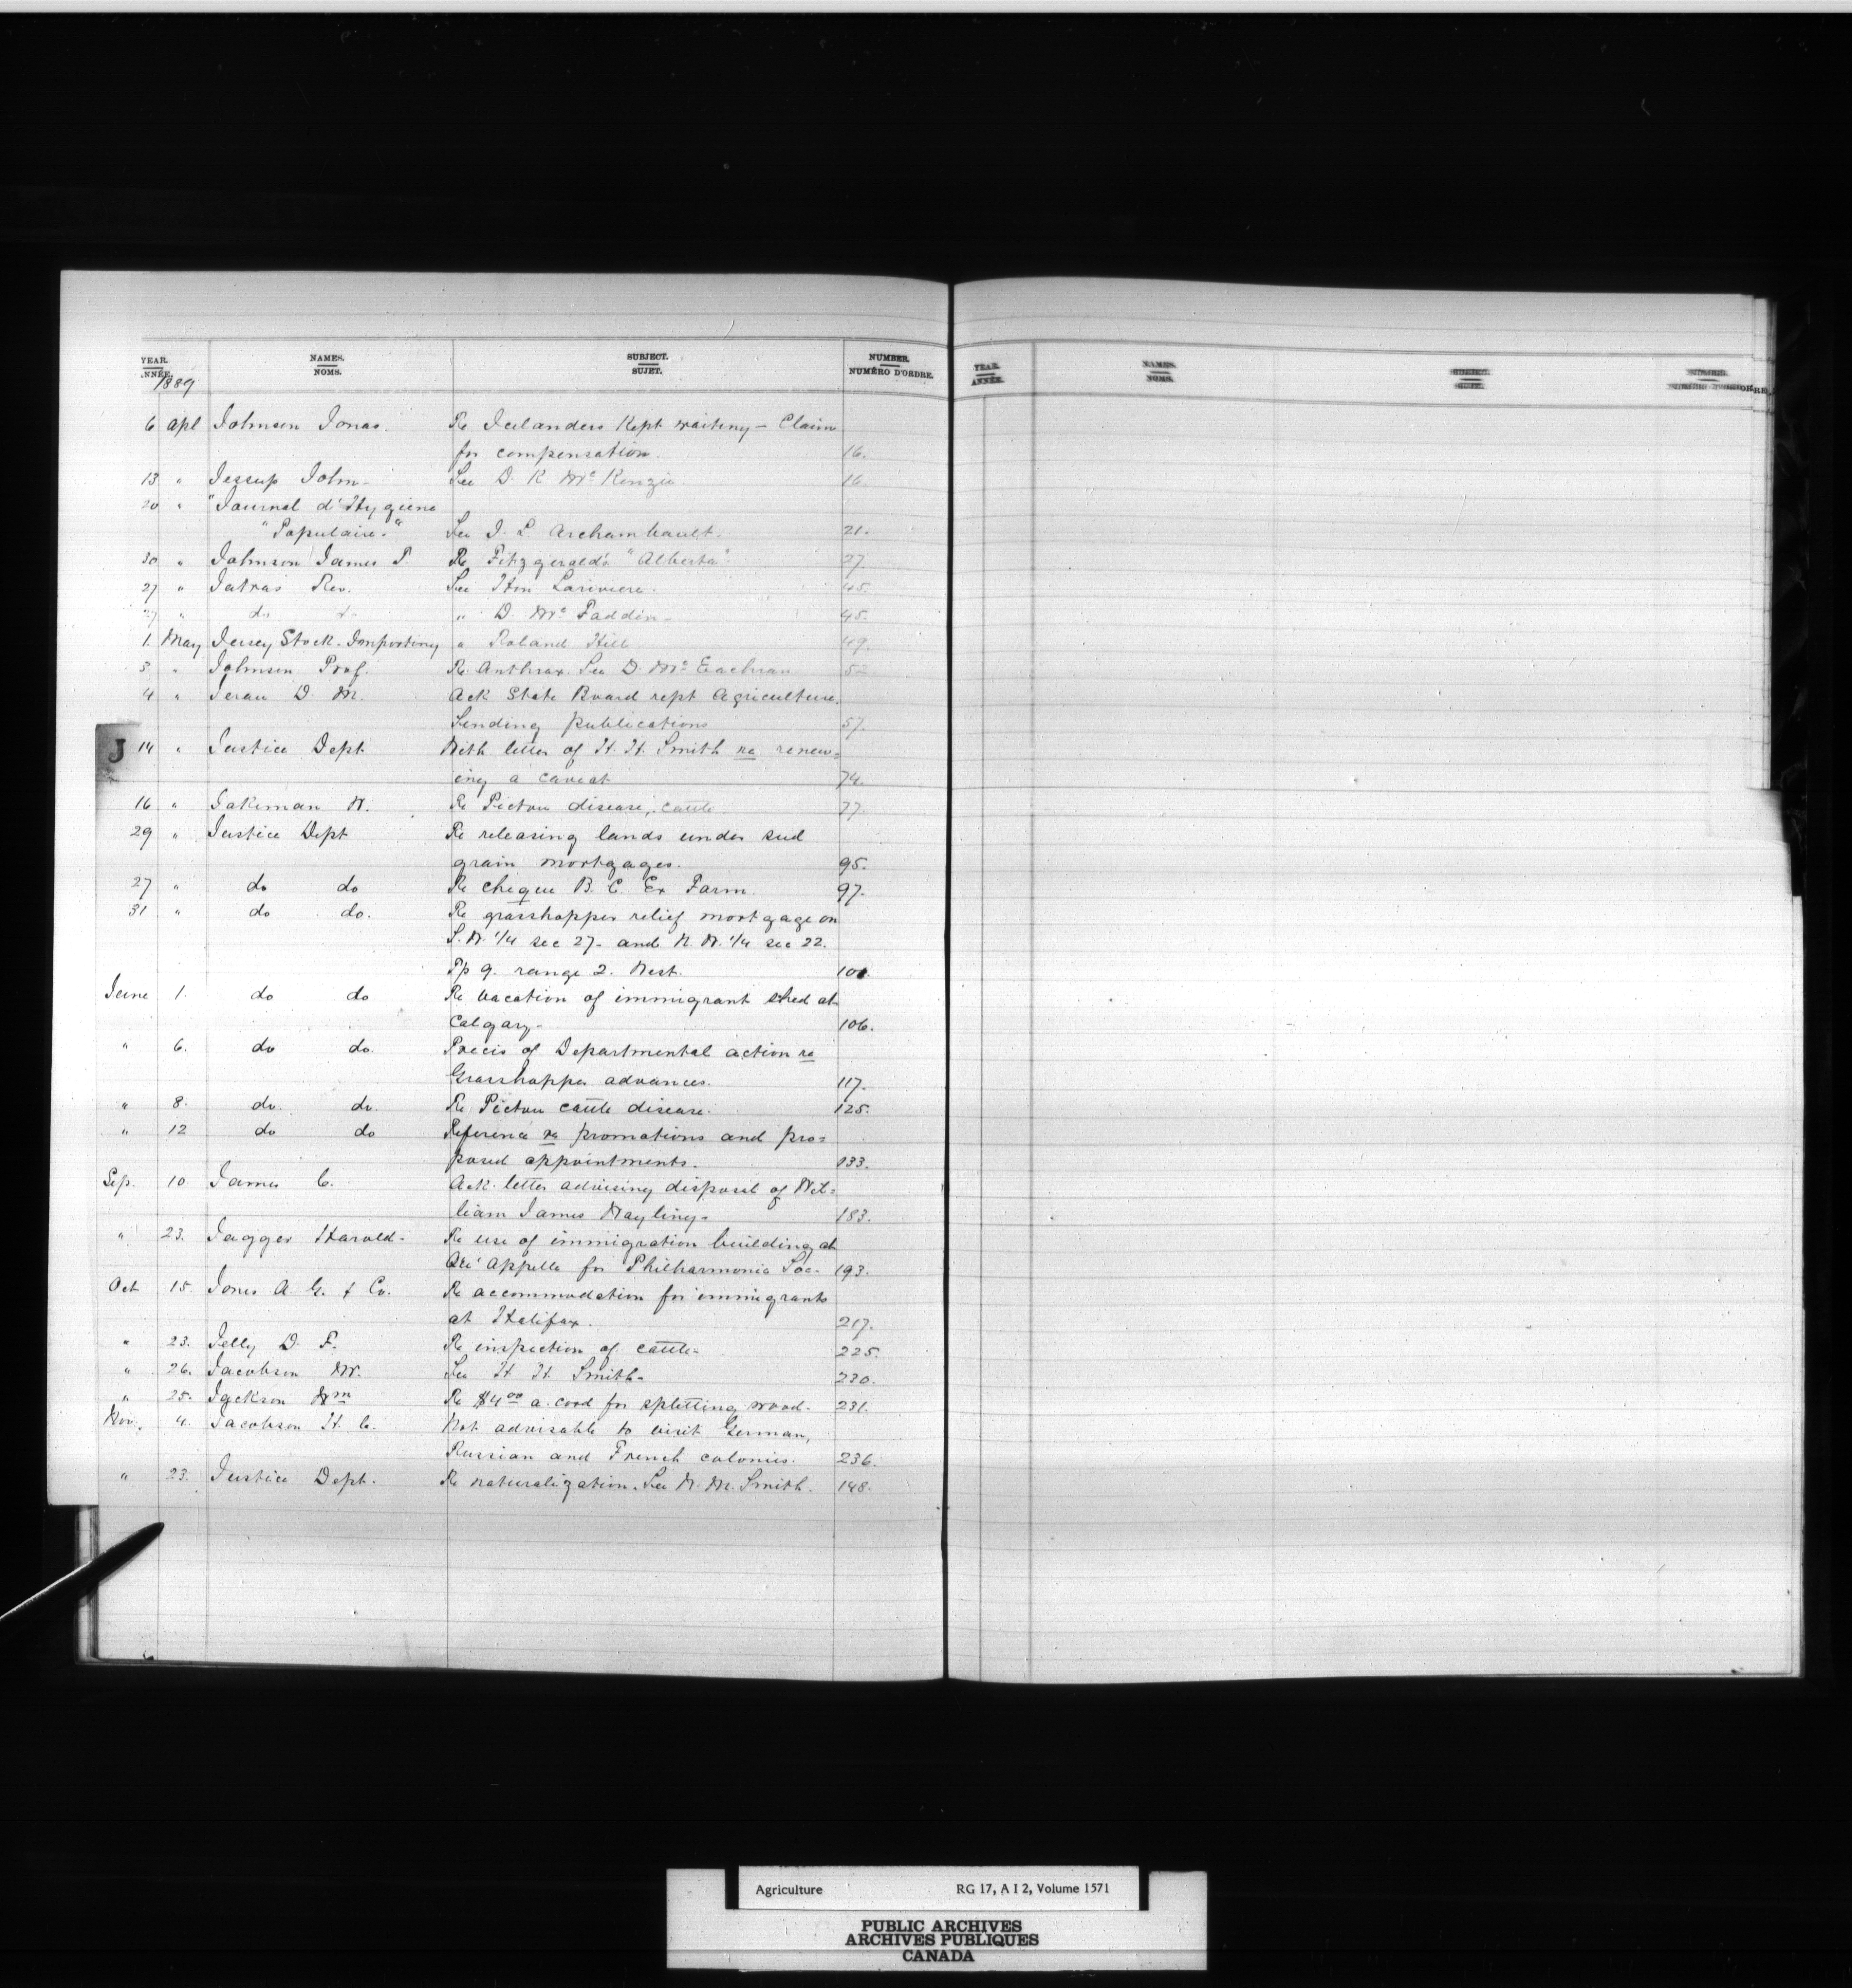 YEAR. NAMES. SUBJECT. NUMBER.
ANNÉE. NOMS. SUJET. NUMÉRO D'ORDRE.
1889
6 Apl Johnson Jonas. Re Icelanders Kept waiting - Claim
for compensation. 16.
13 " Jessup John - See D. K. McKenzie 16
20 " "Journal d'Hygiene
"Populaire." See J. L. Archambault. 21.
30 " Johnson James P. Re Fitzgerald's "Alberta" 27
27 " Jatras Rev. See Hon Lariviere. 45.
27 " do do " D. McFadden - 45.
1. May Jersey Stock Importing " Roland Hill 49.
3 " Johnson Prof. Re Anthrax. See D. McEachran 52
4 " D. M. Ack State Board rept Agriculture.
Sending publications 57.
J
14 " Justice Dept With letter of H. H. Smith re renew=
ing a caveat 74.
16 " Jakeman W. Re Pictou disease, cattle 77.
29 " Justice Dept Re releasing lands under seed
grain mortgages. 95.
27 " do do Re cheque B. C. Ex Farm. 97.
31 " do do. Re grasshopper relief mortgage on
S.W. 1/4 sec 27. and N.W. 1/4 sec 22.
Tp 9. range 2. West. 101.
June 1. do do Re vacation of immigrant shed at
Calgary - 106.
" 6. do do. Precis of Departmental action re
Grasshopper advances. 117.
" 8. do. do. Re Pictou cattle disease. 125.
" 12 do do Reference re promotions and pro=
posed appointments. 133.
Sep. 10 James C. Ack. letter advising disposal of Wil=
liam James Wayling - 183.
" 23. Jagger Harold - Re use of immigration building at
Qu'Appelle for Philharmonic Soc - 193.
Oct 15. Jones A. G. & Co. Re accommodation for immigrants
at Halifax. 217.
" 23. Jelly D. F. Re inspection of cattle - 225.
" 26. Jacobson W. See H. H. Smith - 230.
" 25. Jackson Wm Re $4.00 a cord for splitting wood. 231.
Nov. 4. Jacobson H. C. Not advisable to visit German,
Russian and French colonies. 236.
" 23. Justice Dept. Re naturalization. See W. M. Smith. 148.
YEAR. NAMES. SUBJECT. NUMBER.
ANNÉE. NOMS. SUJET.
Agriculture RG 17, A I 2, Volume 1571
PUBLIC ARCHIVES
ARCHIVES PUBLIQUES
CANADA